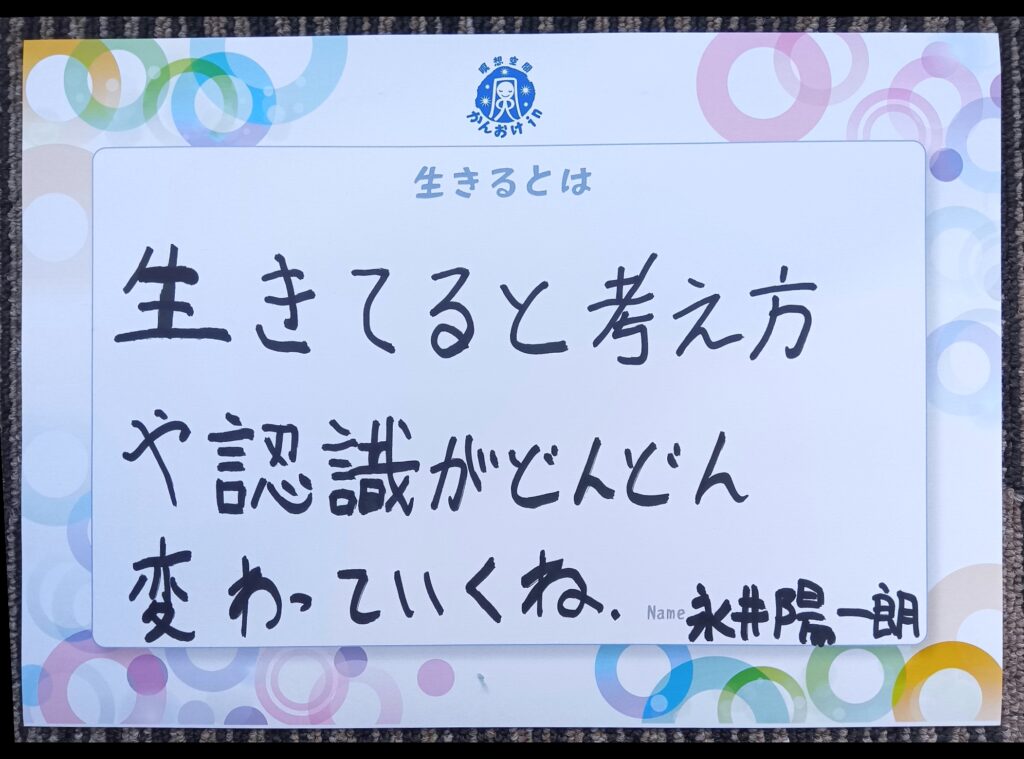 瞑想空間
かんおけin
生きるとは
生きてると考え方
や認識がどんどん
変わっていくね.
Name 永井陽一朗